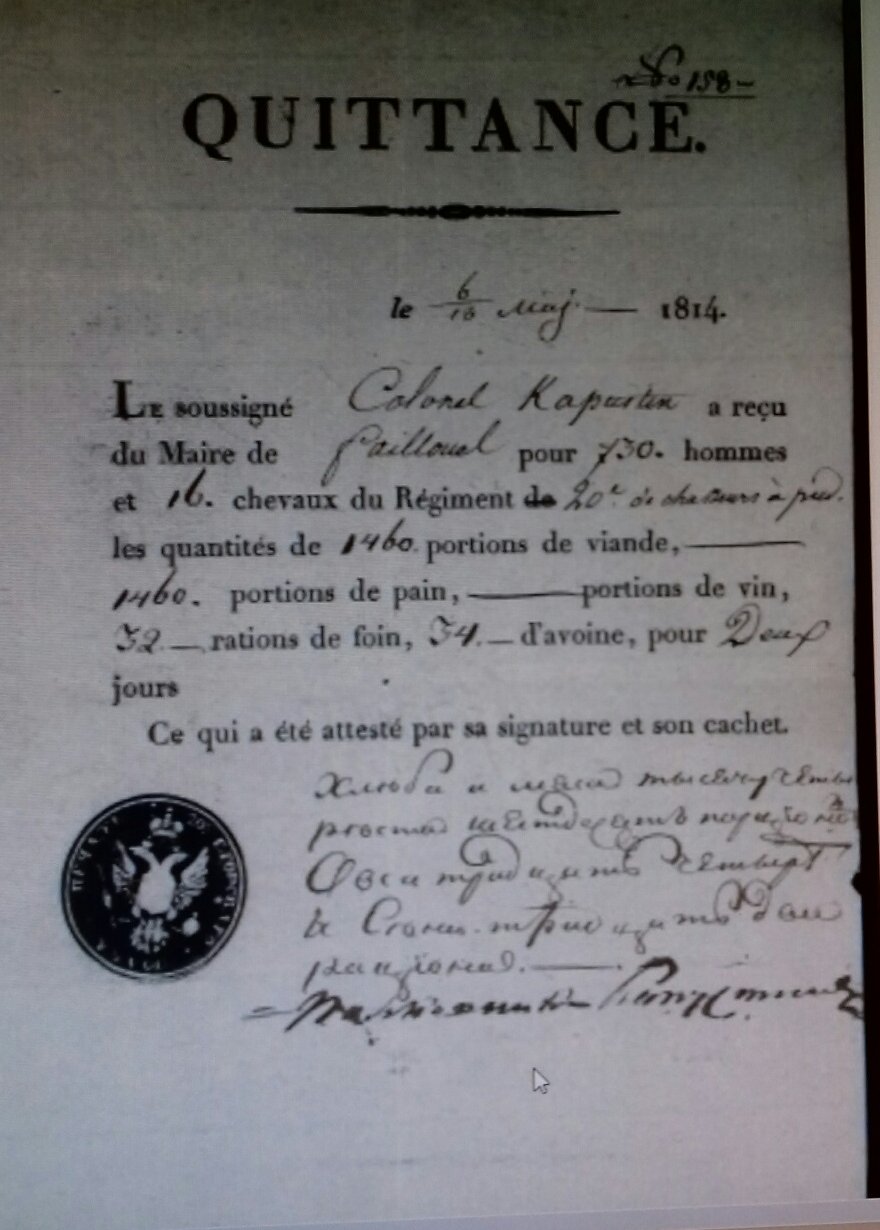 No 158
QUITTANCE.
le 6/18 Maj 1814.
LE soussigné Colonel Kapustin a reçu
du Maire de pour 730. hommes
et 16. chevaux du Régiment de 20e de chasseurs à pied.
les quantités de 1460. portions de viande,
1460. portions de pain, portions de vin,
32 rations de foin, 34. d'avoine, pour Deux
jours
Ce qui a été attesté par sa signature et son cachet.
Хлеба и мяса тысечу четы
реста шестдесятъ порцıоновъ
Овса тридцать четыре
и Сена тридцать два
рацıона.
ПЕЧАТЬ 20. ЕГЕРСКАГО ПОЛКА